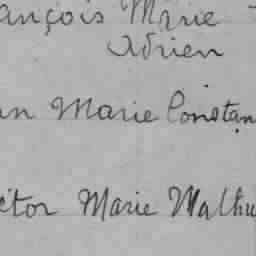 ançois Marie
Adrien
an Marie Constan
ctor Marie Mathu